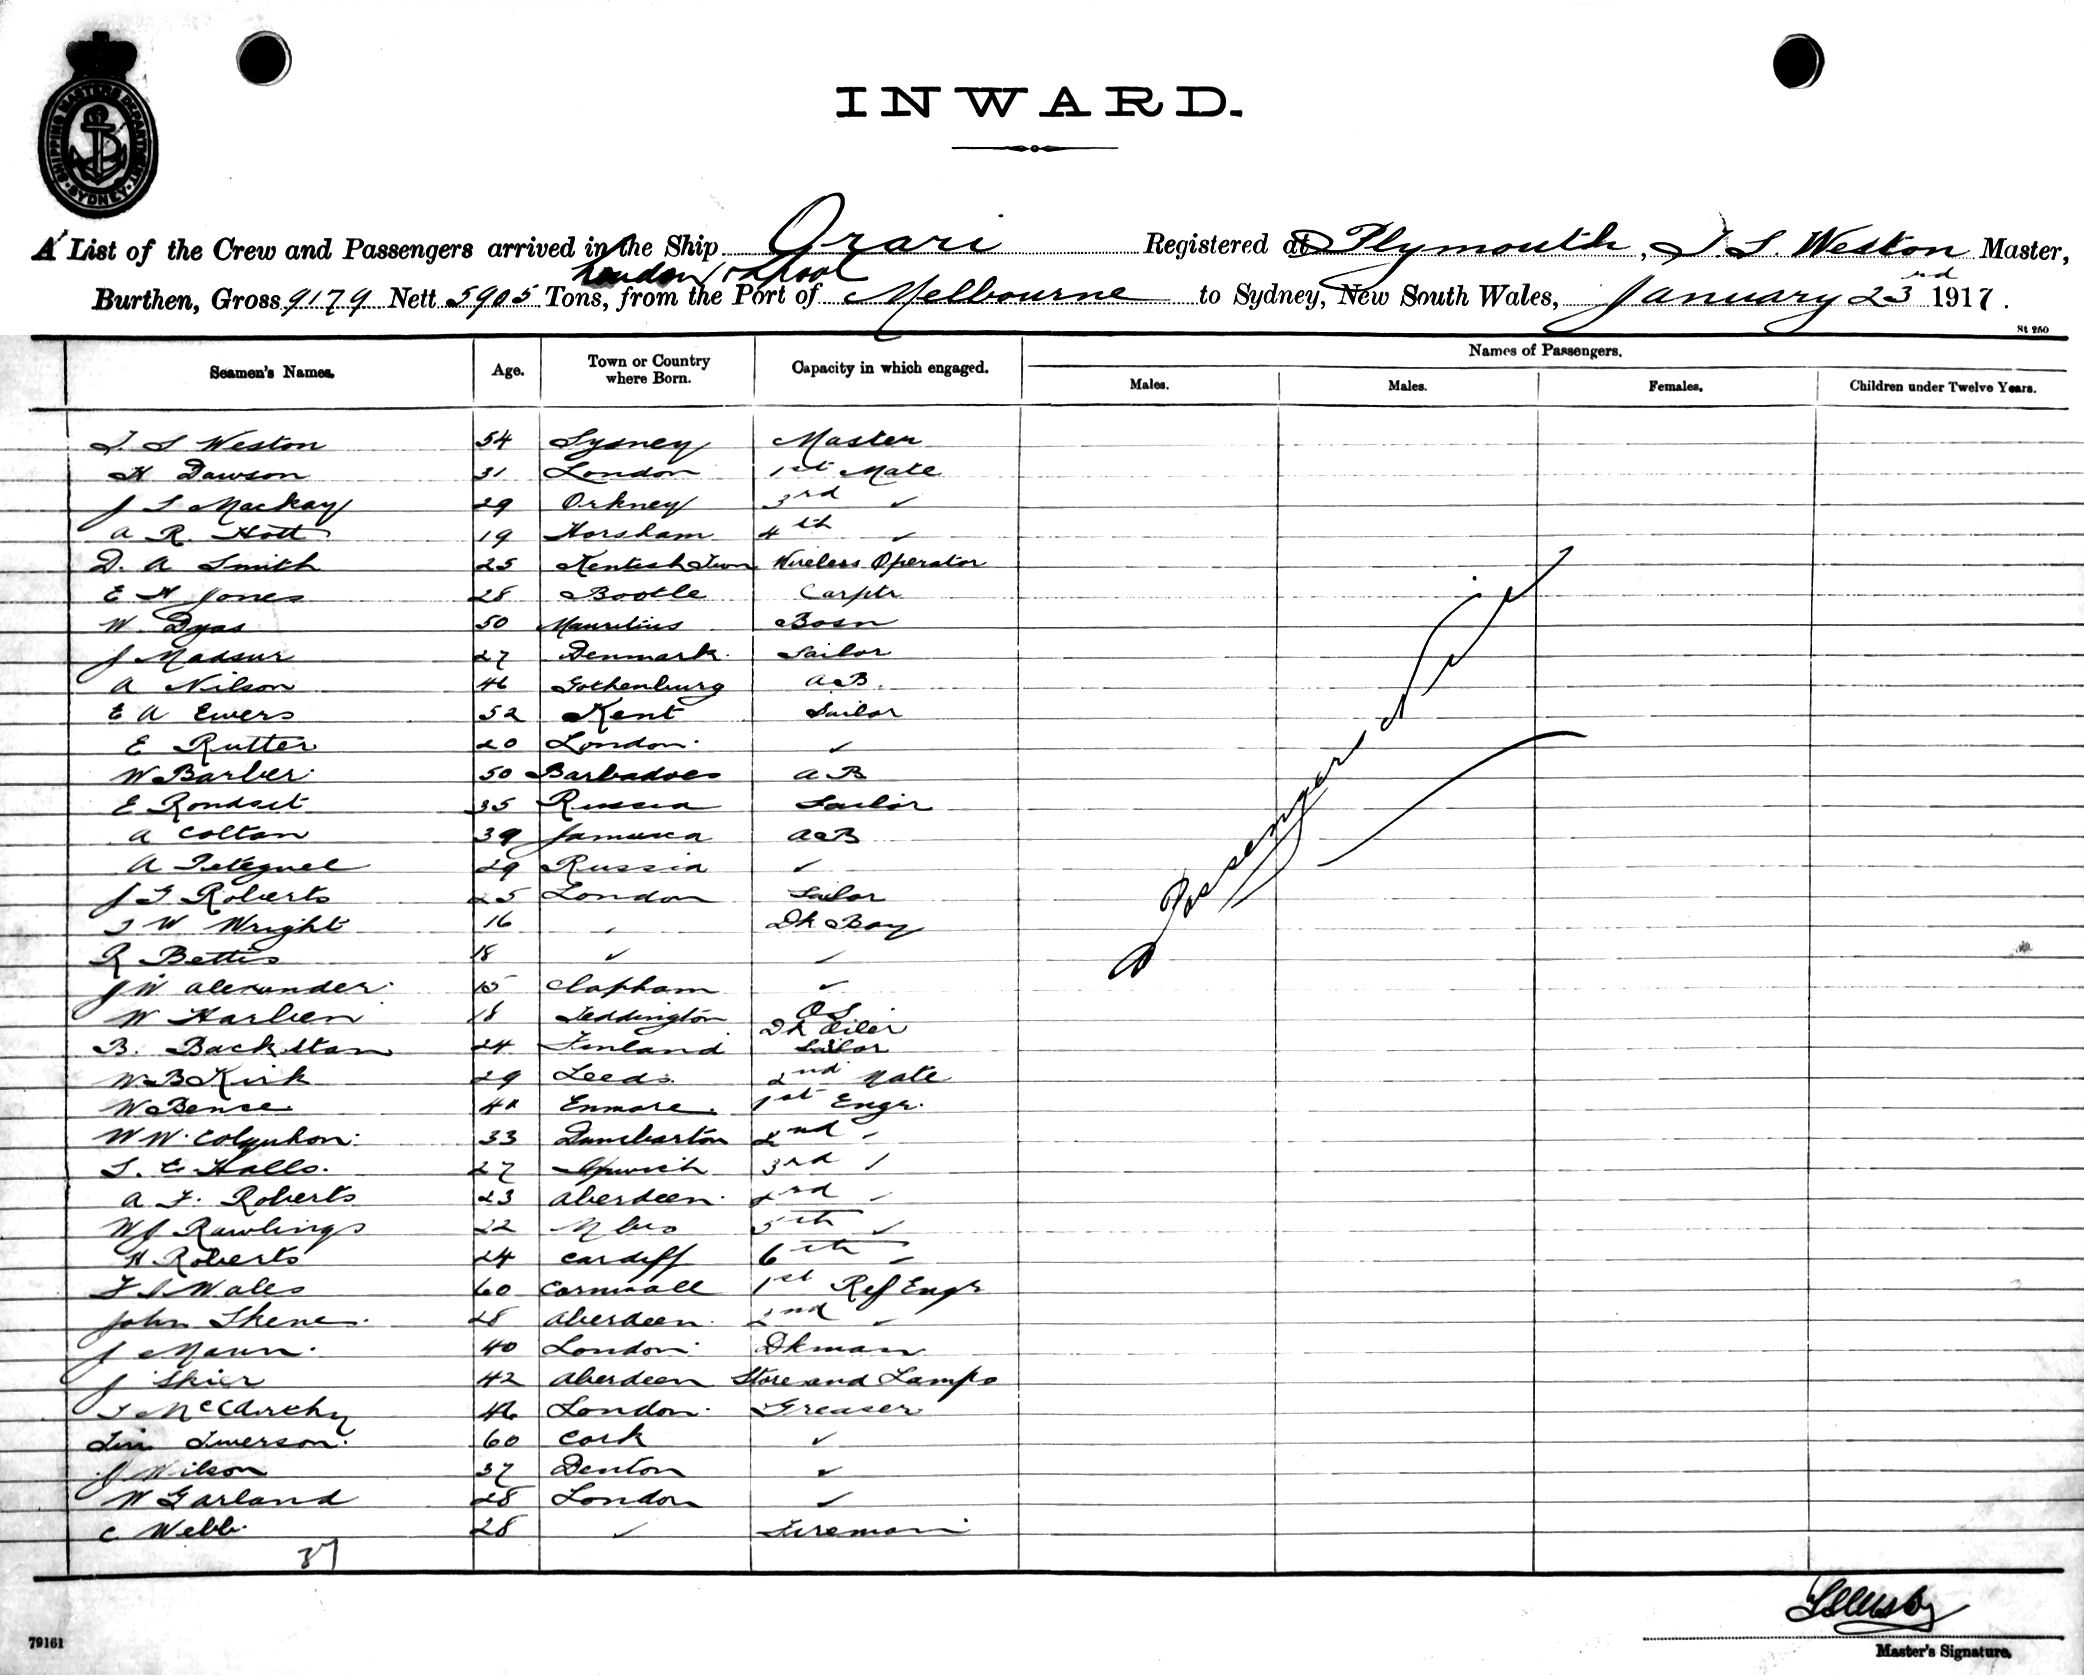 SHIPPING MASTERS DEPARTMENT
SYDNEY
INWARD.
A List of the Crew and Passengers arrived in the Ship Orari Registered at Plymouth, T. S. Weston Master,
London
Burthen, Gross 9179 Nett 5905 Tons, from the Port of Melbourne to Sydney, New South Wales, January 23rd 1917.
St 250
Names of Passengers.
Seamen's Names. Age. Town or Country where Born. Capacity in which engaged. Males. Males. Females. Children under Twelve Years.
T. S Weston 54 Sydney Master
H Dawson 31 London 1st Mate
J S Mackay 29 Orkney 3rd ✓
A R. Hott 19 Horsham 4th ✓
D. A Smith 25 Kentish Town Wireless Operator
E H Jones 28 Bootle Carptr
W. Dyas 50 Mauritius Bosn
J Madsur 27 Denmark Sailor
A Nilson 46 Gothenburg AB.
E A Ewers 52 Kent Sailor
E Rutter 20 London ✓
W Barber 50 Barbadoes AB
E Rondset 35 Russia Sailor
A Coltan 39 Jamaica AB
A 29 Russia ✓
J G Roberts 25 London Sailor
T W Wright 16 " Dk Boy
R Bettis 18 ✓ ✓
J W Alexander 15 Clapham ✓
W Harben 18 Teddington OS
B. Backstan 24 Finland Sailor
W B Kirk 29 Leeds 2nd Mate
W Bence Enmore 1st Engr.
W W. Colquhon 33 Dumbarton 2nd "
S. E Halls. 27 Ipswich 3rd "
A F. Roberts 23 Aberdeen
W J Rawlings 22 5th ✓
H Roberts 24 Cardiff 6th ✓
F J Wales 60 Cornwall 1st Ref Engr
John Skene 28 Aberdeen 2nd ✓
J Mann. 40 London Dkman
J Skier 42 Aberdeen Store and Lamps
T McCarthy 46 London Greaser
Jim Imerson. 60 Cork ✓
J Wilson 37 Denton ✓
W Garland 28 London ✓
C Webb 28 ✓ Fireman
37
Passengers Nil
79161
Master's Signature.